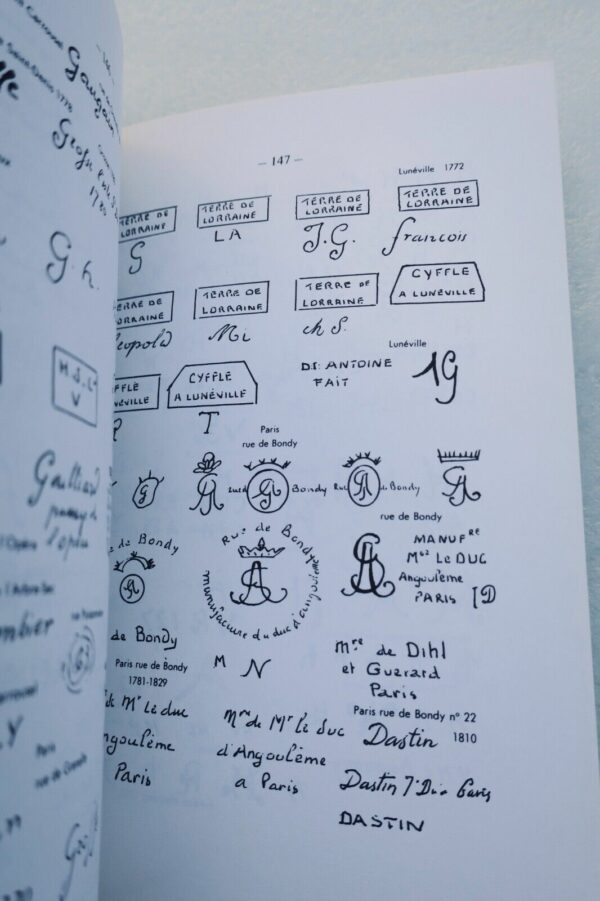 Carrousel
- 146 -
Gaugain
Saint-Denis 1778
1780
G. h.
H.S.L
V
Gailliard
passage de
l'opéra
Paris
- 147 -
Lunéville 1772
TERRE DE
LORRAINE
G
TERRE DE
LORRAINE
LA
TERRE DE
LORRAINE
J.G.
TERRE DE
LORRAINE
francois
TERRE DE
LORRAINE
Leopold
TERRE DE
LORRAINE
Mi
TERRE DE
LORRAINE
ch S.
CYFFLE
A LUNÉVILLE
CYFFLE
A LUNÉVILLE
T
Lunéville
ANTOINE
FAIT
1G
Paris
rue de Bondy
G
Rue d Bondy
Rue de Bondy
rue de Bondy
de Bondy
Rue de Bondy
manufacture du duc d'angoulême
MANUFRE
LE DUC
Angoulême
PARIS
de Bondy
Paris rue de Bondy
1781-1829
M N
Mre de Dihl
et Guerard
Paris
de Mr Le duc
Angoulême
Paris
Mre de Mr Le duc
d'Angoulême
a Paris
Paris rue de Bondy n° 22
Dastin 1810
Dastin
DASTIN